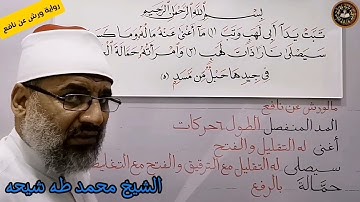 رواية ورش عن نافع
بِسْمِ اللَّهِ الرَّحْمَٰنِ الرَّحِيمِ
تَبَّتْ يَدَآ أَبِى لَهَبٍ وَتَبَّ (١) مَآ أَغْنَىٰ عَنْهُ مَالُهُۥ وَمَا كَسَبَ
سَيَصْلَىٰ نَارًا ذَاتَ لَهَبٍ (٣) وَٱمْرَأَتُهُۥ حَمَّالَةُ
فِى جِيدِهَا حَبْلٌ مِّن مَّسَدٍ (٥)
مالورش عن نافع
المد المنفصل الطول ٦ حركات
أغنى له التقليل والفتح
سيصلى له التقليل مع الترقيق والفتح مع التغليظ
حمالة بالرفع
الشيخ محمد طه شيحه